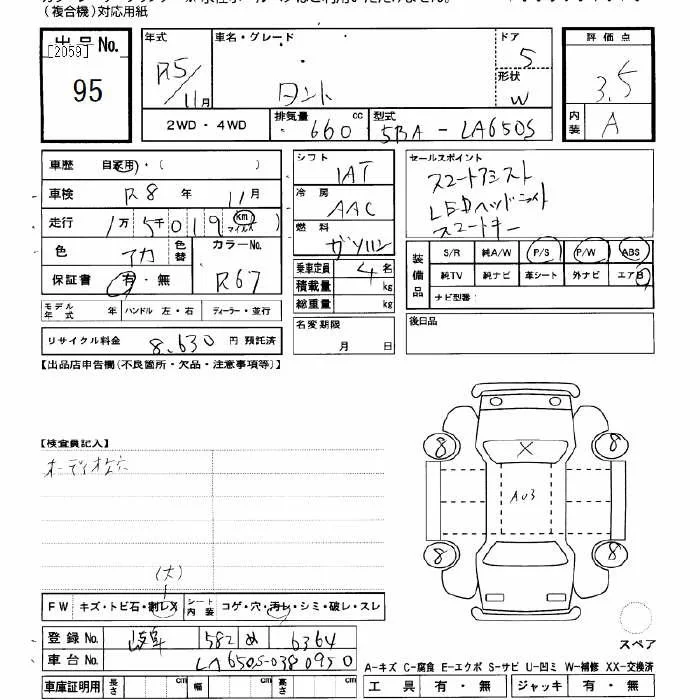 (複合機)対応用紙
出品No.
[2059]
95
年式
R5/11月
車名・グレード
タント
ドア
5
形状
W
評価点
3.5
内装
A
2WD・4WD
排気量
660 cc
型式
5BA-LA650S
車歴 自家用・( )
車検 R8 年 11月
走行 1万5千019 km マイルス
色 アカ
色替
カラーNo.
R67
保証書 有・無
モデル年式 年 ハンドル 左・右 ディーラー・並行
リサイクル料金 8,630 円 預託済
シフト
IAT
冷房
AAC
燃料
ガソリン
乗車定員 4 名
積載量 kg
総重量 kg
名変期限
月 日
セールスポイント
スマートアシスト
LEDヘッドライト
スマートキー
装備品
S/R 純A/W P/S P/W ABS
純TV 純ナビ 革シート 外ナビ エアB
ナビ型番:
後日品
【出品店申告欄(不良箇所・欠品・注意事項等)】
【検査員記入】
(大)
FW キズ・トビ石・割レX シート内装 コゲ・穴・汚レ・シミ・破レ・スレ
登録No. 岐阜 582 め 6364
車台No. LA650S-0380950
車庫証明用 長さ cm 幅 cm 高さ cm
8
X
8
A03
8
8
スペア
A-キズ C-腐食 E-エクボ S-サビ U-凹ミ W-補修 XX-交換済
工具 有・無 ジャッキ 有・無